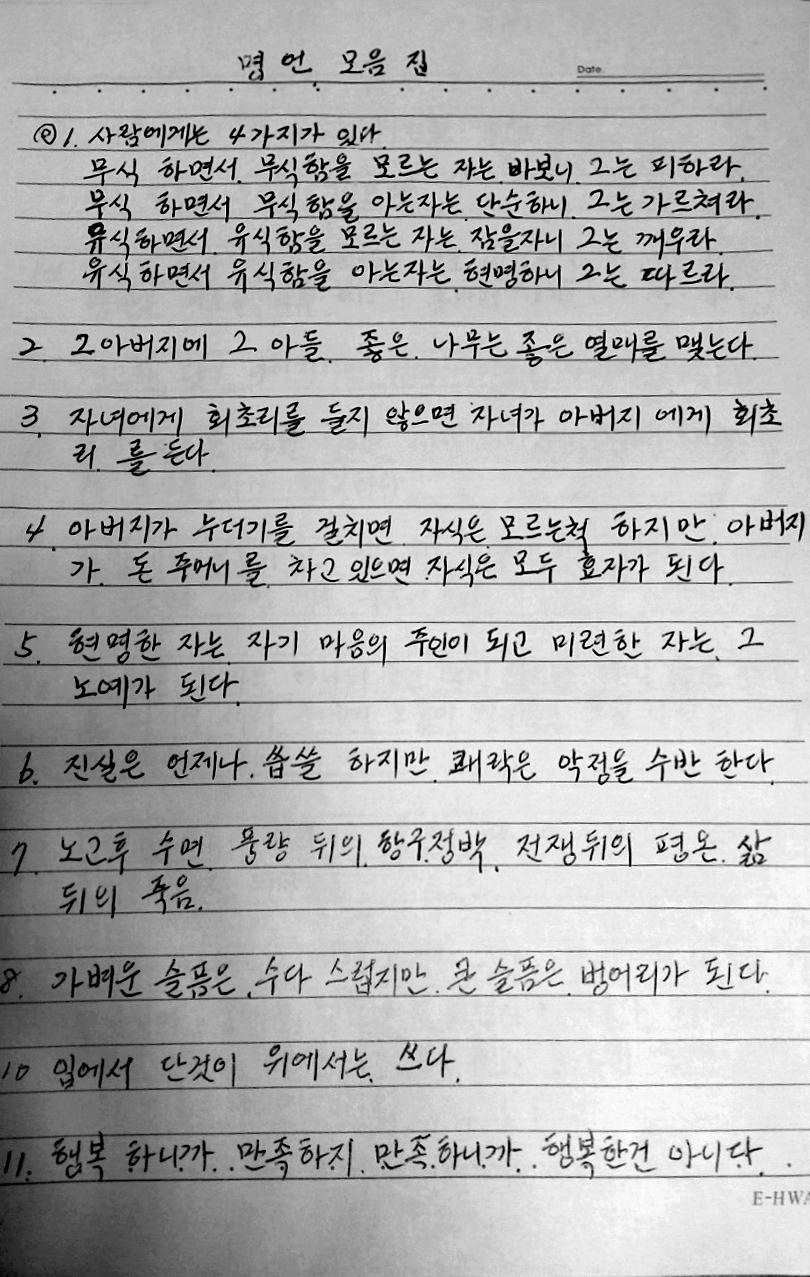 명언 모음집
Date
1. 사람에게는 4가지가 있다.
무식 하면서. 무식함을 모르는 자는 바보니 그는 피하라.
무식 하면서 무식함을 아는자는 단순하니. 그는 가르쳐라.
유식하면서. 유식함을 모르는 자는. 잠을자니 그는 깨우라.
유식하면서 유식함을 아는자는 현명하니 그는 따르라.
2. 그아버지에 그 아들. 좋은. 나무는 좋은 열매를 맺는다.
3. 자녀에게 회초리를 들지 않으면 자녀가 아버지 에게 회초
리. 를 든다.
4. 아버지가 누더기를 걸치면 자식은 모르는척 하지만. 아버지
가. 돈 주머니를 차고 있으면 자식은 모두 효자가 된다.
5. 현명한 자는 자기 마음의 주인이 되고 미련한 자는. 그
노예가 된다.
6. 진실은 언제나. 씁쓸 하지만. 쾌락은 악정을 수반 한다.
7. 노고후 수면. 풍랑 뒤의. 항구정박. 전쟁뒤의 평온. 삶
뒤의 죽음.
8. 가벼운 슬픔은. 수다 스럽지만. 큰 슬픔은. 벙어리가 된다.
10 입에서 단것이 위에서는. 쓰다.
11. 행복 하니까. 만족하지. 만족하니까. 행복한건 아니다.
E-HWA